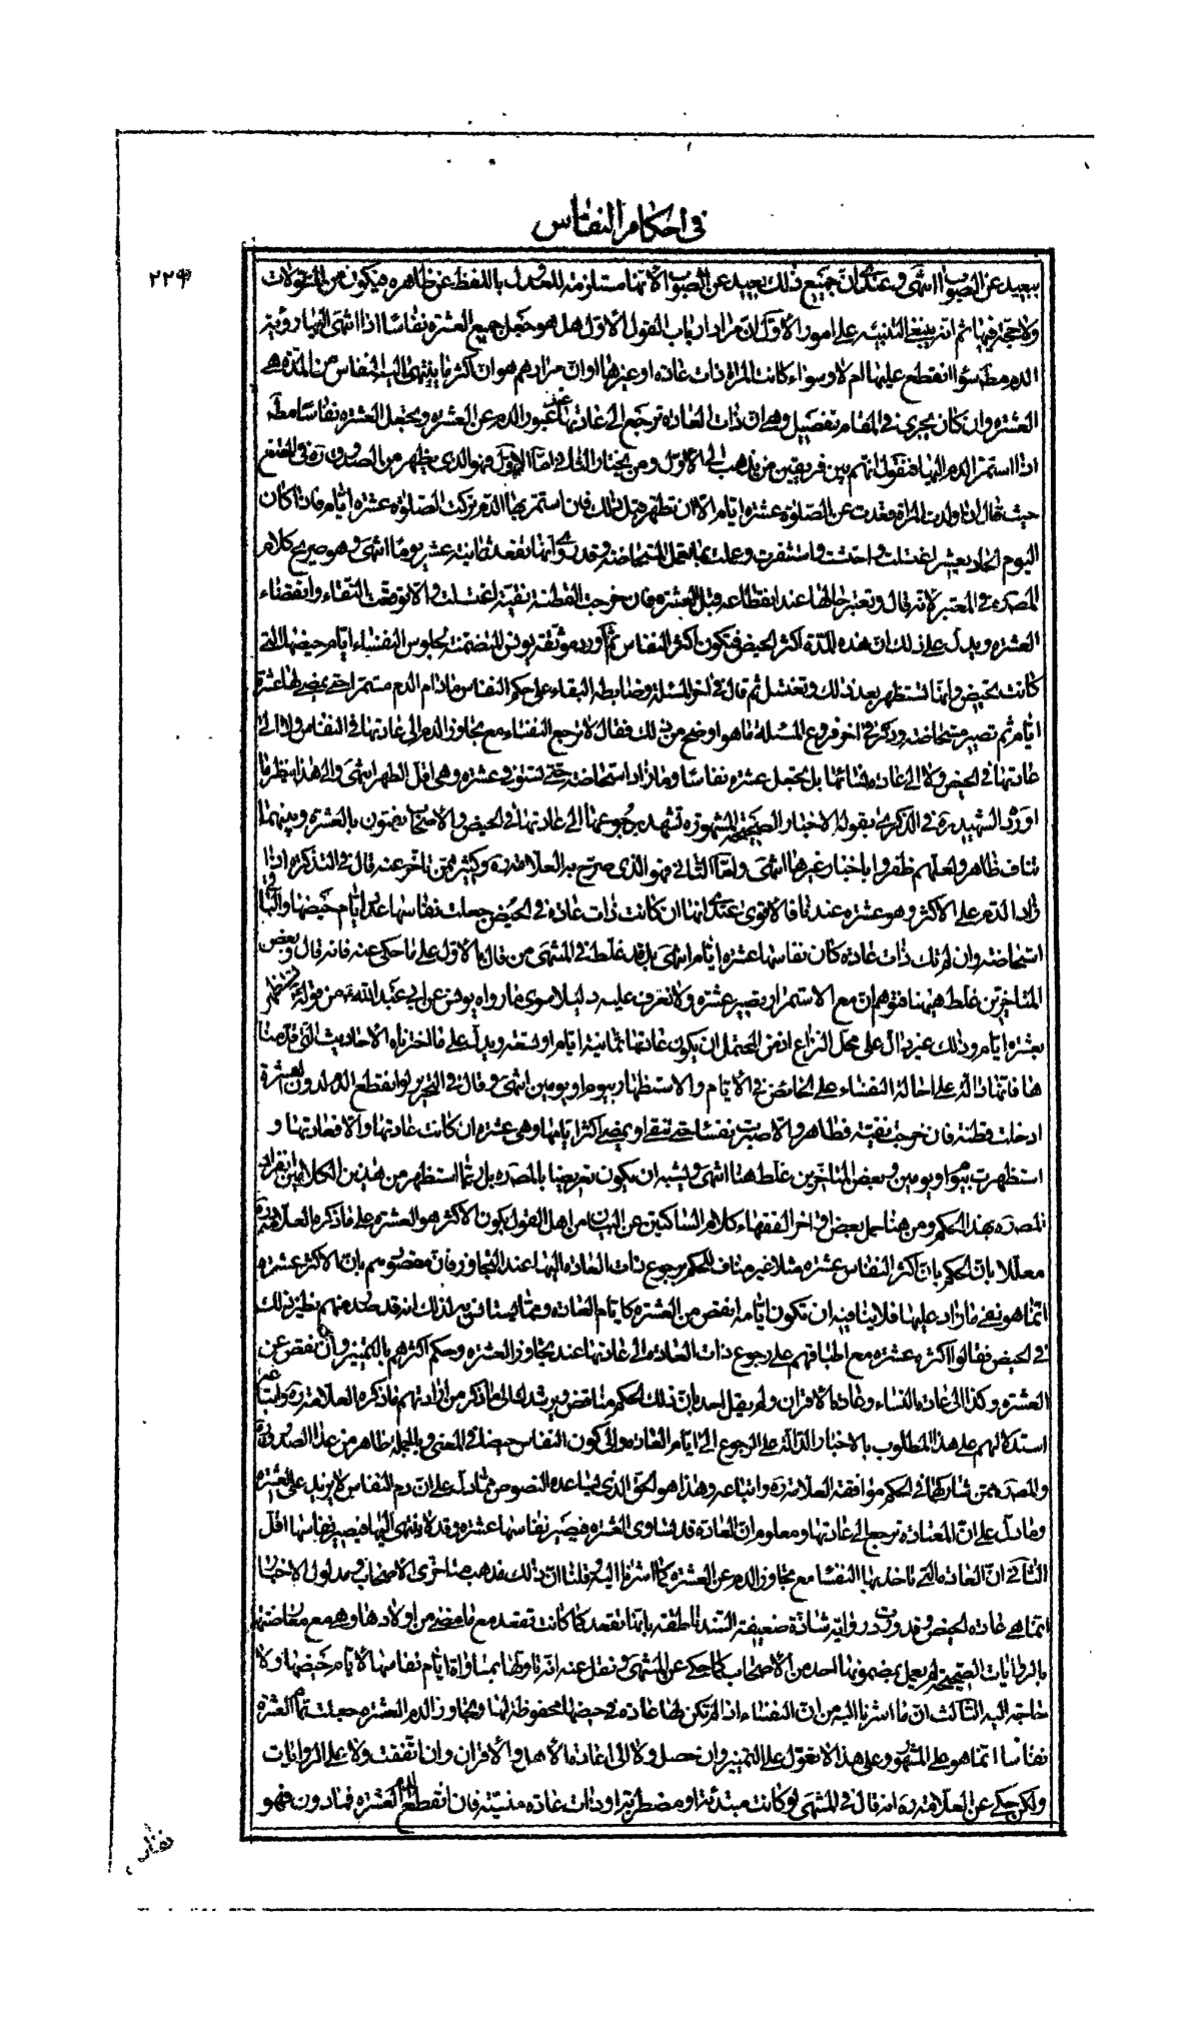 في احكام النفاس
٢٢٩
ببعيد عن الصواب انتهى وعندي ان جميع ذلك بعيد عن الصواب لانها مستلزمة للعدول باللفظ عن ظاهره فيكون من المأولات
ولا حجة فيها ثم انه ينبغي التنبيه على امور الاول ان مراد ارباب القول الاول هل هو جعل جميع العشرة نفاسا اذا انتهى اليها رؤية
الدم مطلقا سواء انقطع عليها ام لا وسواء كانت المراة ذات عادة او غيرها او ان مرادهم هو ان اكثر ما ينتهى اليه النفاس من المدة هي
العشرة وان كان يجرى في المقام تفصيل وهي ان ذات العادة ترجع الى عادتها عند عبور الدم عن العشرة ويجعل العشرة نفاسا مطلقا
اذا استمر الدم اليها فنقول انهم بين فريقين من يذهب الى الاول ومن يختار الثاني اما الاول فهو الذي يظهر من الصدوق ره في المقنع
حيث قال اذا ولدت المراة قعدت عن الصلوة عشرة ايام الا ان تطهر قبل ذلك فان استمر بها الدم تركت الصلوة عشرة ايام فاذا كان
اليوم الحادي عشر اغتسلت واحتشت واستثفرت وعملت بما تعمل المستحاضة وقد روى انها تقعد ثمانية عشر يوما انتهى وهو صريح كلام
المصنف ره في المعتبر لانه قال وتعتبر حالها عند انقطاعه قبل العشرة فان خرجت القطنة نقية اغتسلت والا توقعت النقاء او انقضاء
العشرة ويدل على ذلك ان هذه المدة اكثر الحيض فيكون اكثر النفاس ثم اورد موثقة يونس المتضمنة لجلوس النفساء ايام حيضها التي
كانت تحيض وانها تستظهر بعد ذلك وتغتسل ثم قال في اخر المسئلة وضابطه البقاء على حكم النفاس ما دام الدم مستمرا حتى يمضى لها عشرة
ايام ثم تصير مستحاضة وذكر في اخر فروع المسئلة ما هو اوضح من ذلك فقال لا ترجع النفساء مع تجاوز الدم الى عادتها في النفاس ولا الى
عادتها في الحيض ولا الى عادة نسائها بل تجعل عشرة نفاسا وما زاد استحاضة حتى تستوفي عشرة وهي اقل الطهر انتهى والى هذا ينظر ما
اورد الشهيد ره في الذكرى بقوله الاخبار الصحيحة المشهورة تشهد برجوعها الى عادتها في الحيض والاصحاب يفتون بالعشرة وبينهما
تناف ظاهر ولعلهم ظفروا باخبار غيرها انتهى واما الثاني فهو الذي صرح به العلامة ره وكثير ممن تاخر عنه قال في التذكرة اذا
زاد الدم على الاكثر وهو عشرة عندنا فالاقوى عندي انها ان كانت ذات عادة في الحيض جعلت نفاسها عدد ايام حيضها والباقي
استحاضة وان لم تك ذات عادة كان نفاسها عشرة ايام انتهى بل قد غلط في المنتهى من قال بالاول على ما حكى عنه فانه قال وبعض
المتاخرين غلط هيهنا فتوهم ان مع الاستمرار يصير عشرة ولا نعرف عليه دليلا سوى ما رواه يونس عن ابي عبد الله ع من قوله تستظهر
بعشرة ايام وذلك غير دال على محل النزاع اذ من المحتمل ان يكون عادتها ثمانية ايام او تسعة ويدل على ما اخترناه الاحاديث التي قدمنا
ها فانها دالة على احالة النفساء على الحائض في الايام والاستظهار بيوم او يومين انتهى وقال في التحرير لو انقطع الدم لدون العشرة
ادخلت قطنة فان خرجت نقية فطاهر والا صبرت نفساء حتى تنقى او يمضى اكثر ايامها وهي عشرة ان كانت عادتها والا فعادتها و
استظهرت بيوم او يومين وبعض المتاخرين غلط هنا انتهى ويشبه ان يكون تعريضا بالمصنف ره بل ربما استظهر من هذين الكلامين انفراد
المصنف ره بهذا الحكم ومن هنا حمل بعض اواخر الفقهاء كلام الساكتين عن البيان من اهل القول بكون الاكثر هو العشرة على ما ذكره العلامة ره
معللا بان الحكم بان اكثر النفاس عشرة مثلا غير مناف للحكم برجوع ذات العادة اليها عند التجاوز فان مقصودهم بان الاكثر عشرة
انما هو نفى ما زاد عليها فلا ينافيه ان تكون ايامه انقص من العشرة كايام العادة ومما يستانس به لذلك انه قد صدر منهم نظير ذلك
في الحيض فقالوا اكثره عشرة مع اطباقهم على رجوع ذات العادة الى عادتها عند تجاوز العشرة وحكم اكثرهم بالتمييز وان نقص عن
العشرة وكذا الى عادة النساء وعادة الاقران ولم يقل احد بان ذلك الحكم مناقض ويرشد الى ما ذكر من ارادتهم ما ذكره العلامة ره ولاتباعهم
استدلالهم على هذا المطلوب بالاخبار الدالة على الرجوع الى ايام العادة والى كون النفاس حيضا في المعنى وبالجملة ظاهر من عدا الصدوق ره
والمصنف ره ممن شاركهما في الحكم موافقة العلامة ره واتباعه وهذا هو الحق الذي تساعده النصوص مما دل على ان دم النفاس لا يزيد على العشرة
وما دل على ان المعتادة ترجع الى عادتها ومعلوم ان العادة قد تساوى العشرة فيصير نفاسها عشرة وقد لا ينتهى اليها فيصير نفاسها اقل
الثاني ان العادة التي تاخذ بها النفساء مع تجاوز الدم عن العشرة كما اشرنا اليه وقلنا ان ذلك مذهب متاخرى الاصحاب ومدلول الاخبار
انما هي عادة الحيض وقد وردت رواية شاذة ضعيفة السند ناطقة بانها تقعد كما كانت تقعد مع ما مضى من اولادها وهي مع معارضتها
بالروايات الصحيحة لم يعمل بمضمونها احد من الاصحاب كما حكى عن المنتهى ونقل عنه انه تاولها بمساواة ايام نفاسها لايام حيضها ولا
حاجة اليه الثالث ان ما اشرنا اليه من ان النفساء اذا لم تكن لها عادة في حيضها محفوظة لها وتجاوز الدم العشرة جعلت تمام العشرة
نفاسا انما هو على المشهور وعلى هذا لا تعول على التمييز وان حصل ولا الى عادة الاهل والاقران وان اتفقت ولا على الروايات
ولكن حكى عن العلامة ره انه قال في المنتهى لو كانت مبتدئة او مضطربة او ذات عادة منسية فان انقطع الدم لعشرة فما دون فهو
نفاس